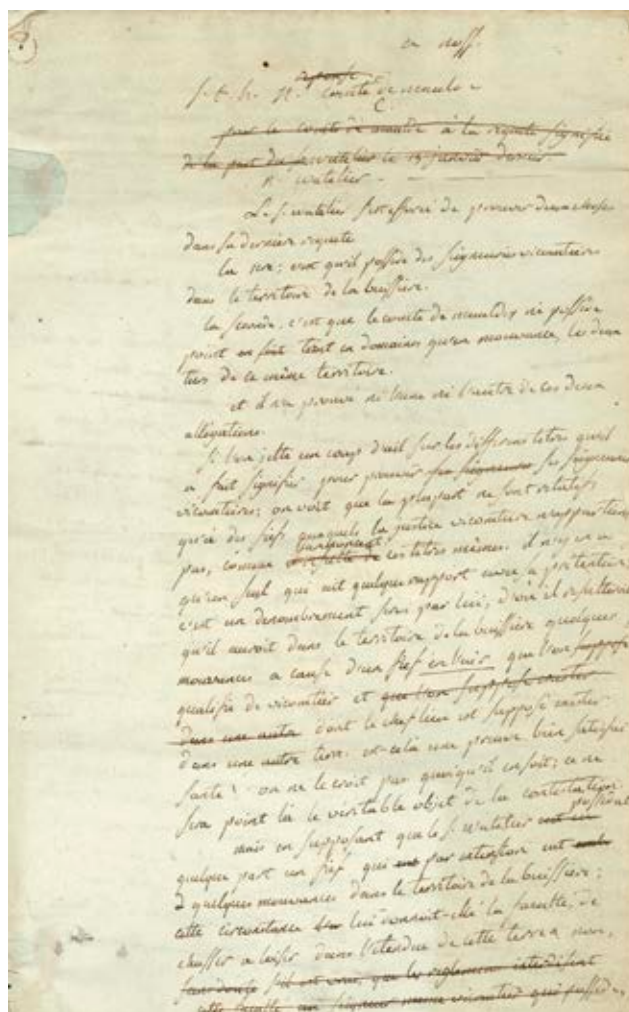 réponse
comte de
pour le comte de à la requete signifiée
de la part du le 15 janvier dernier
Le s. s'est efforcé de prouver deux choses
dans sa derniere requete
la 1ere: c'est qu'il possede des seigneuries vicomtieres
dans le territoire de la buissiere.
la seconde, c'est que le comte de ne possede
point en fait tant en domaines qu'en mouvances, les deux
tiers de ce même territoire.
et il ne prouve ni l'une ni l'autre de ces deux
allegations.
Si l'on jette un coup d'œil sur les differens titres qu'il
a fait signifier pour prouver ses seigneuries
vicomtieres; on voit que la plupart ne sont relatifs
qu'à des fiefs auxquels la justice vicomtiere n'appartient
pas, comme ces titres mêmes. il n'y en a
qu'un seul qui ait quelque rapport
c'est un denombrement par lui, d'où il resulteroit
qu'il auroit dans le territoire de la buissiere quelques
mouvances a cause d'un fief en l'air que l'on suppose
qualifié de vicomtier et que l'on suppose exister
dans une autre dont le chef lieu est supposé exister
dans une autre terre. est-ce là une preuve bien satisfai
sante? on ne le croit pas quoiqu'il en soit; ce ne
sera point là le veritable objet de la contestation
mais en supposant que le s. possedat
quelque part un fief qui par extension eut
quelques mouvances dans le territoire de la buissiere;
cette circonstance lui donneroit-elle la faculté, de
chasser a loisir dans l'etendue de cette terre
sans doute s'il est vrai, que les reglemens interdisent
cette faculté au seigneur meme vicomtier qui possede